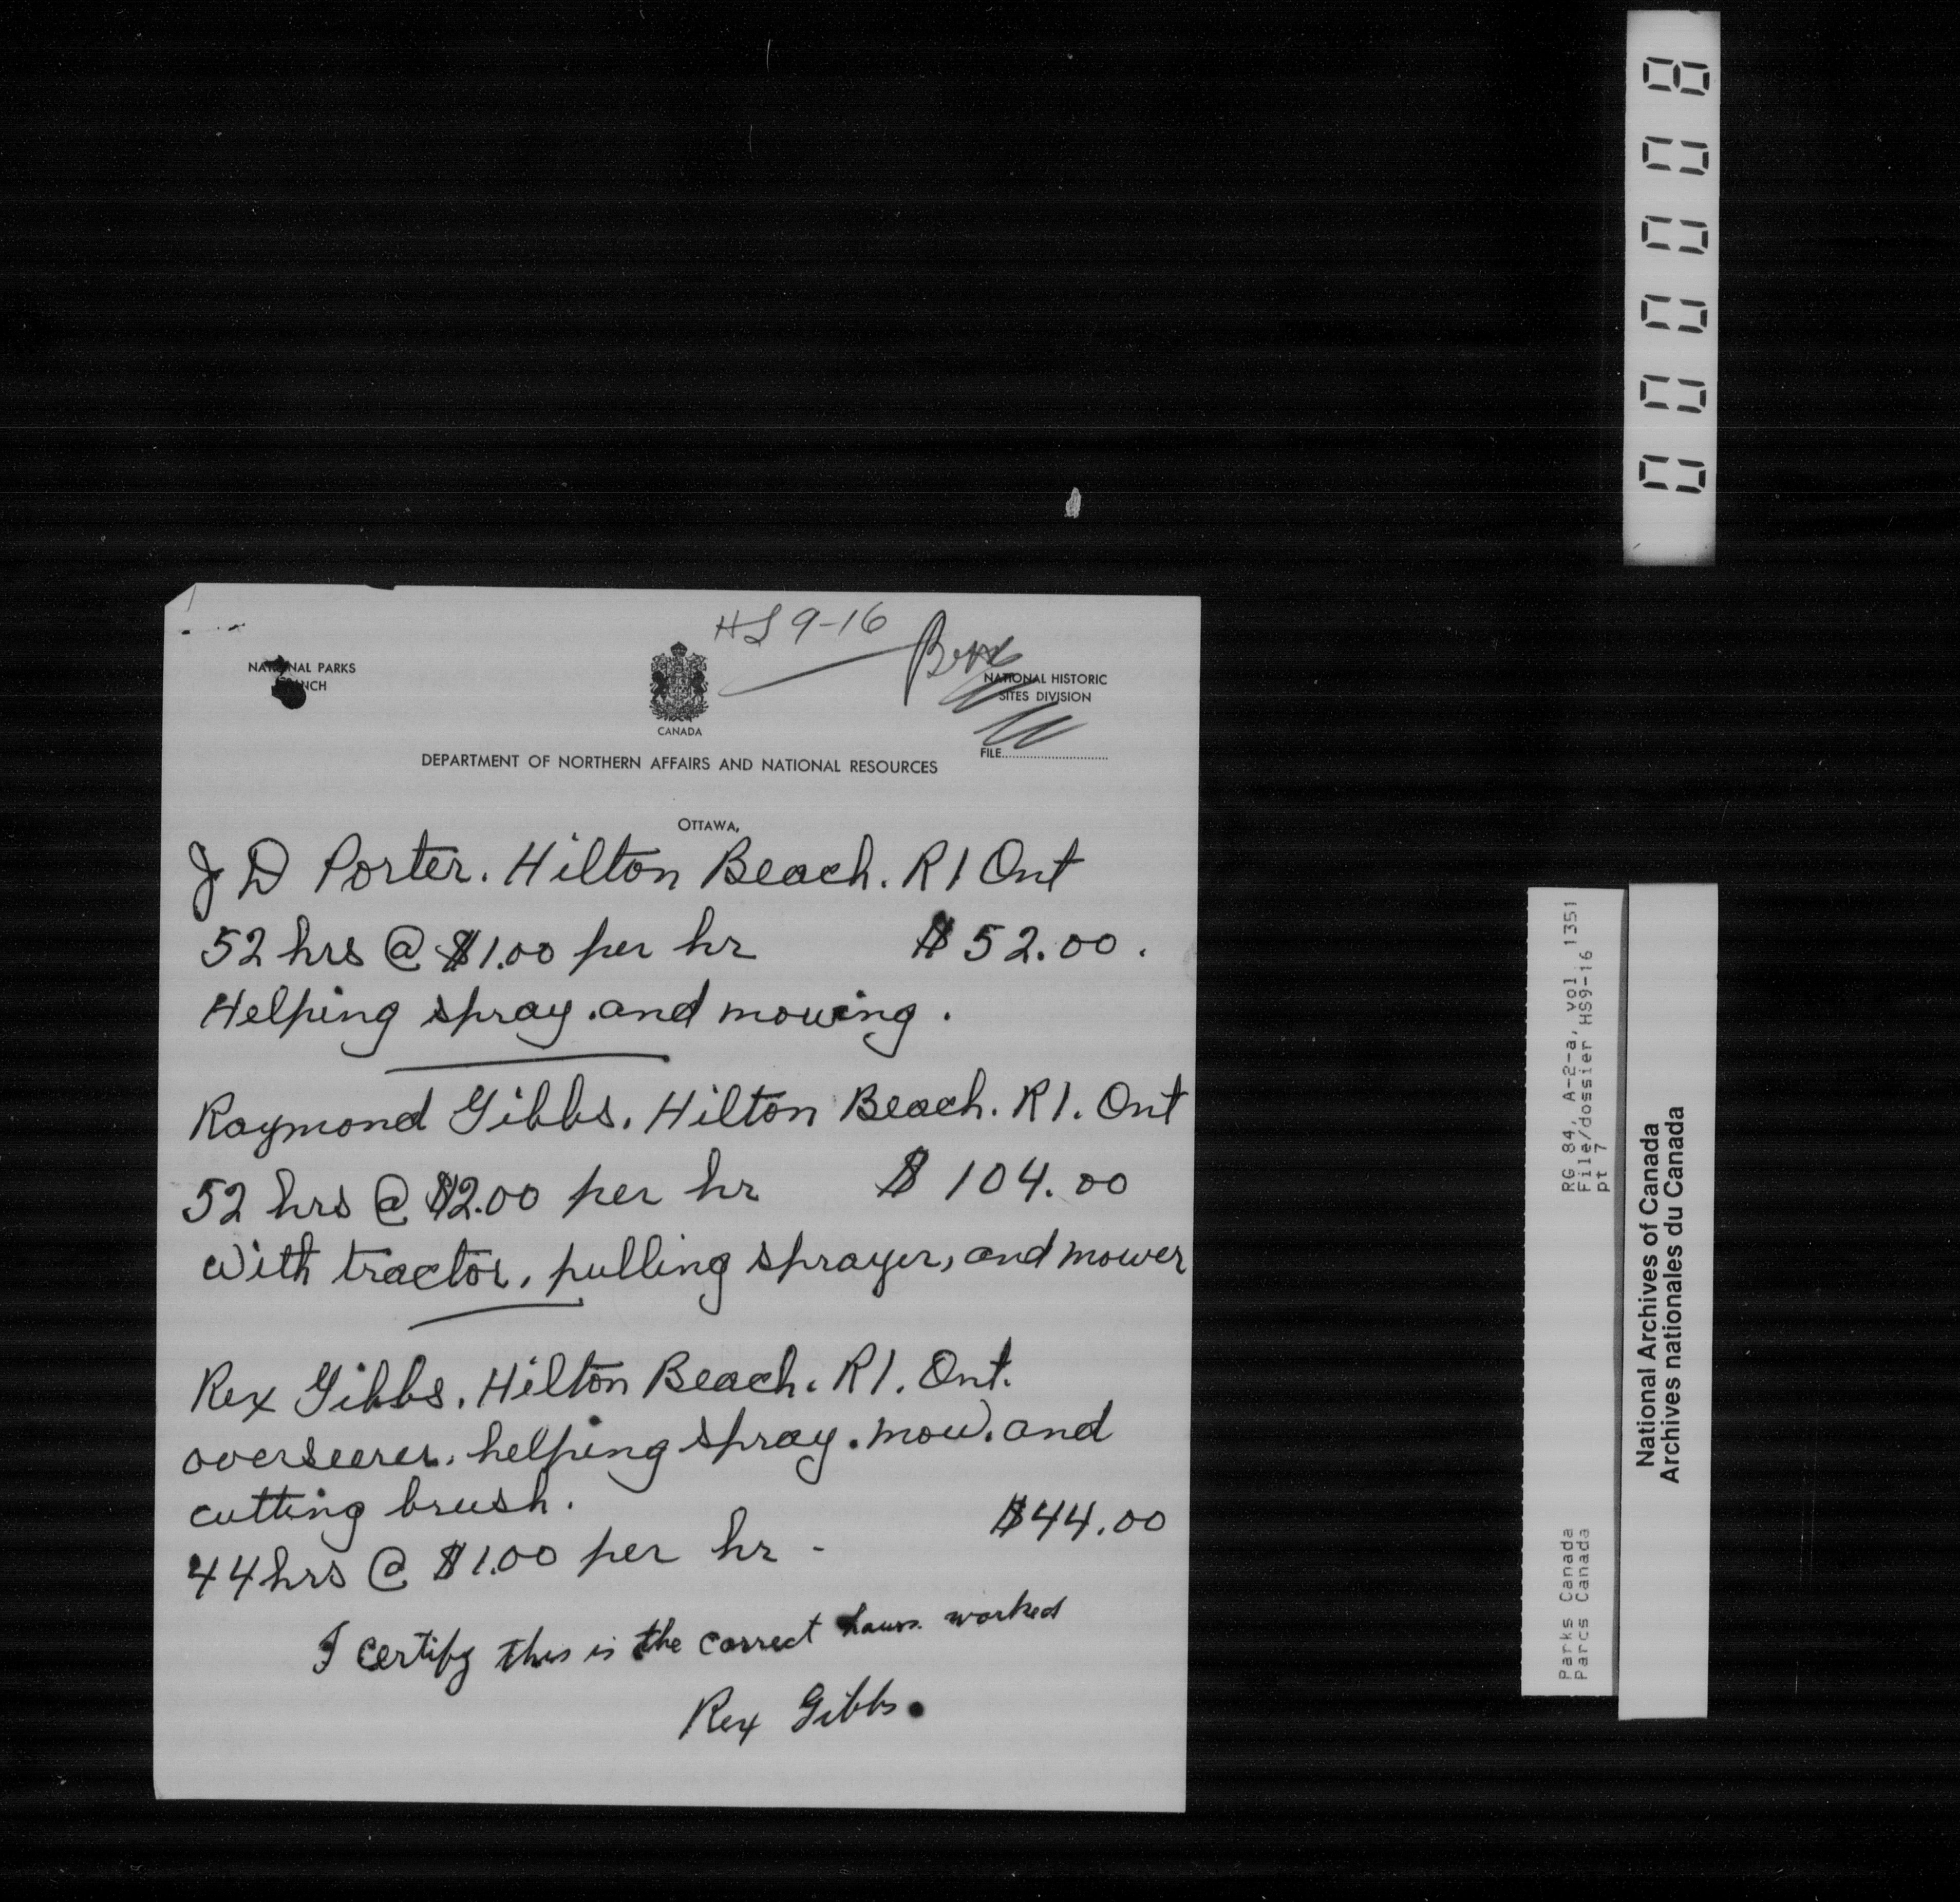 HS 9-16
NATIONAL PARKS
BRANCH
CANADA
NATIONAL HISTORIC
SITES DIVISION
FILE
DEPARTMENT OF NORTHERN AFFAIRS AND NATIONAL RESOURCES
OTTAWA,
J D Porter. Hilton Beach. R 1 Ont
52 hrs @ $1.00 per hr $52.00.
Helping spray. and mowing.
Raymond Gibbs. Hilton Beach. R 1. Ont
52 hrs @ $2.00 per hr $104.00
With tractor, pulling sprayer, and mower
Rex Gibbs. Hilton Beach. R 1. Ont.
overseerer. helping spray. mow. and
cutting brush.
44 hrs @ $1.00 per hr - $44.00
I certify this is the correct hours. worked
Rex Gibbs.
000008
RG 84, A-2-a, vol. 1351
File/dossier HS9-16
pt 7
Parks Canada
Parcs Canada
National Archives of Canada
Archives nationales du Canada